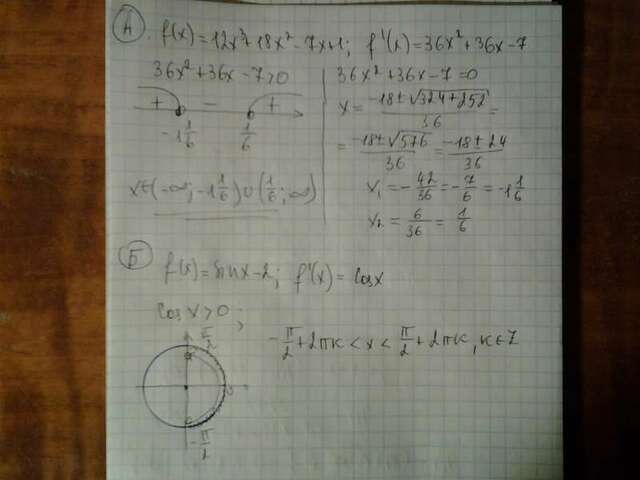 А. f(x)=12x³+18x²-7x+1; f'(x)=36x²+36x-7
36x²+36x-7>0
+ - +
-1 1/6 1/6
x∈(-∞; -1 1/6)∪(1/6; ∞)
36x²+36x-7=0
x = (-18±√(324+252))/36 =
= (-18±√576)/36 = (-18±24)/36
x₁ = -42/36 = -7/6 = -1 1/6
x₂ = 6/36 = 1/6
Б f(x)=sinx-2; f'(x)=cosx
cosx>0;
π/2
0
-π/2
-π/2+2πk<x<π/2+2πk, k∈Z